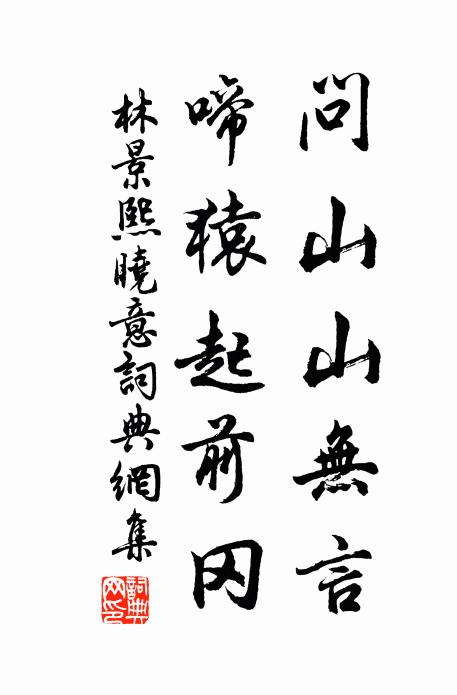 問山山無言
啼猿起前冈
林景熙曉意詞典網集
詞典网印